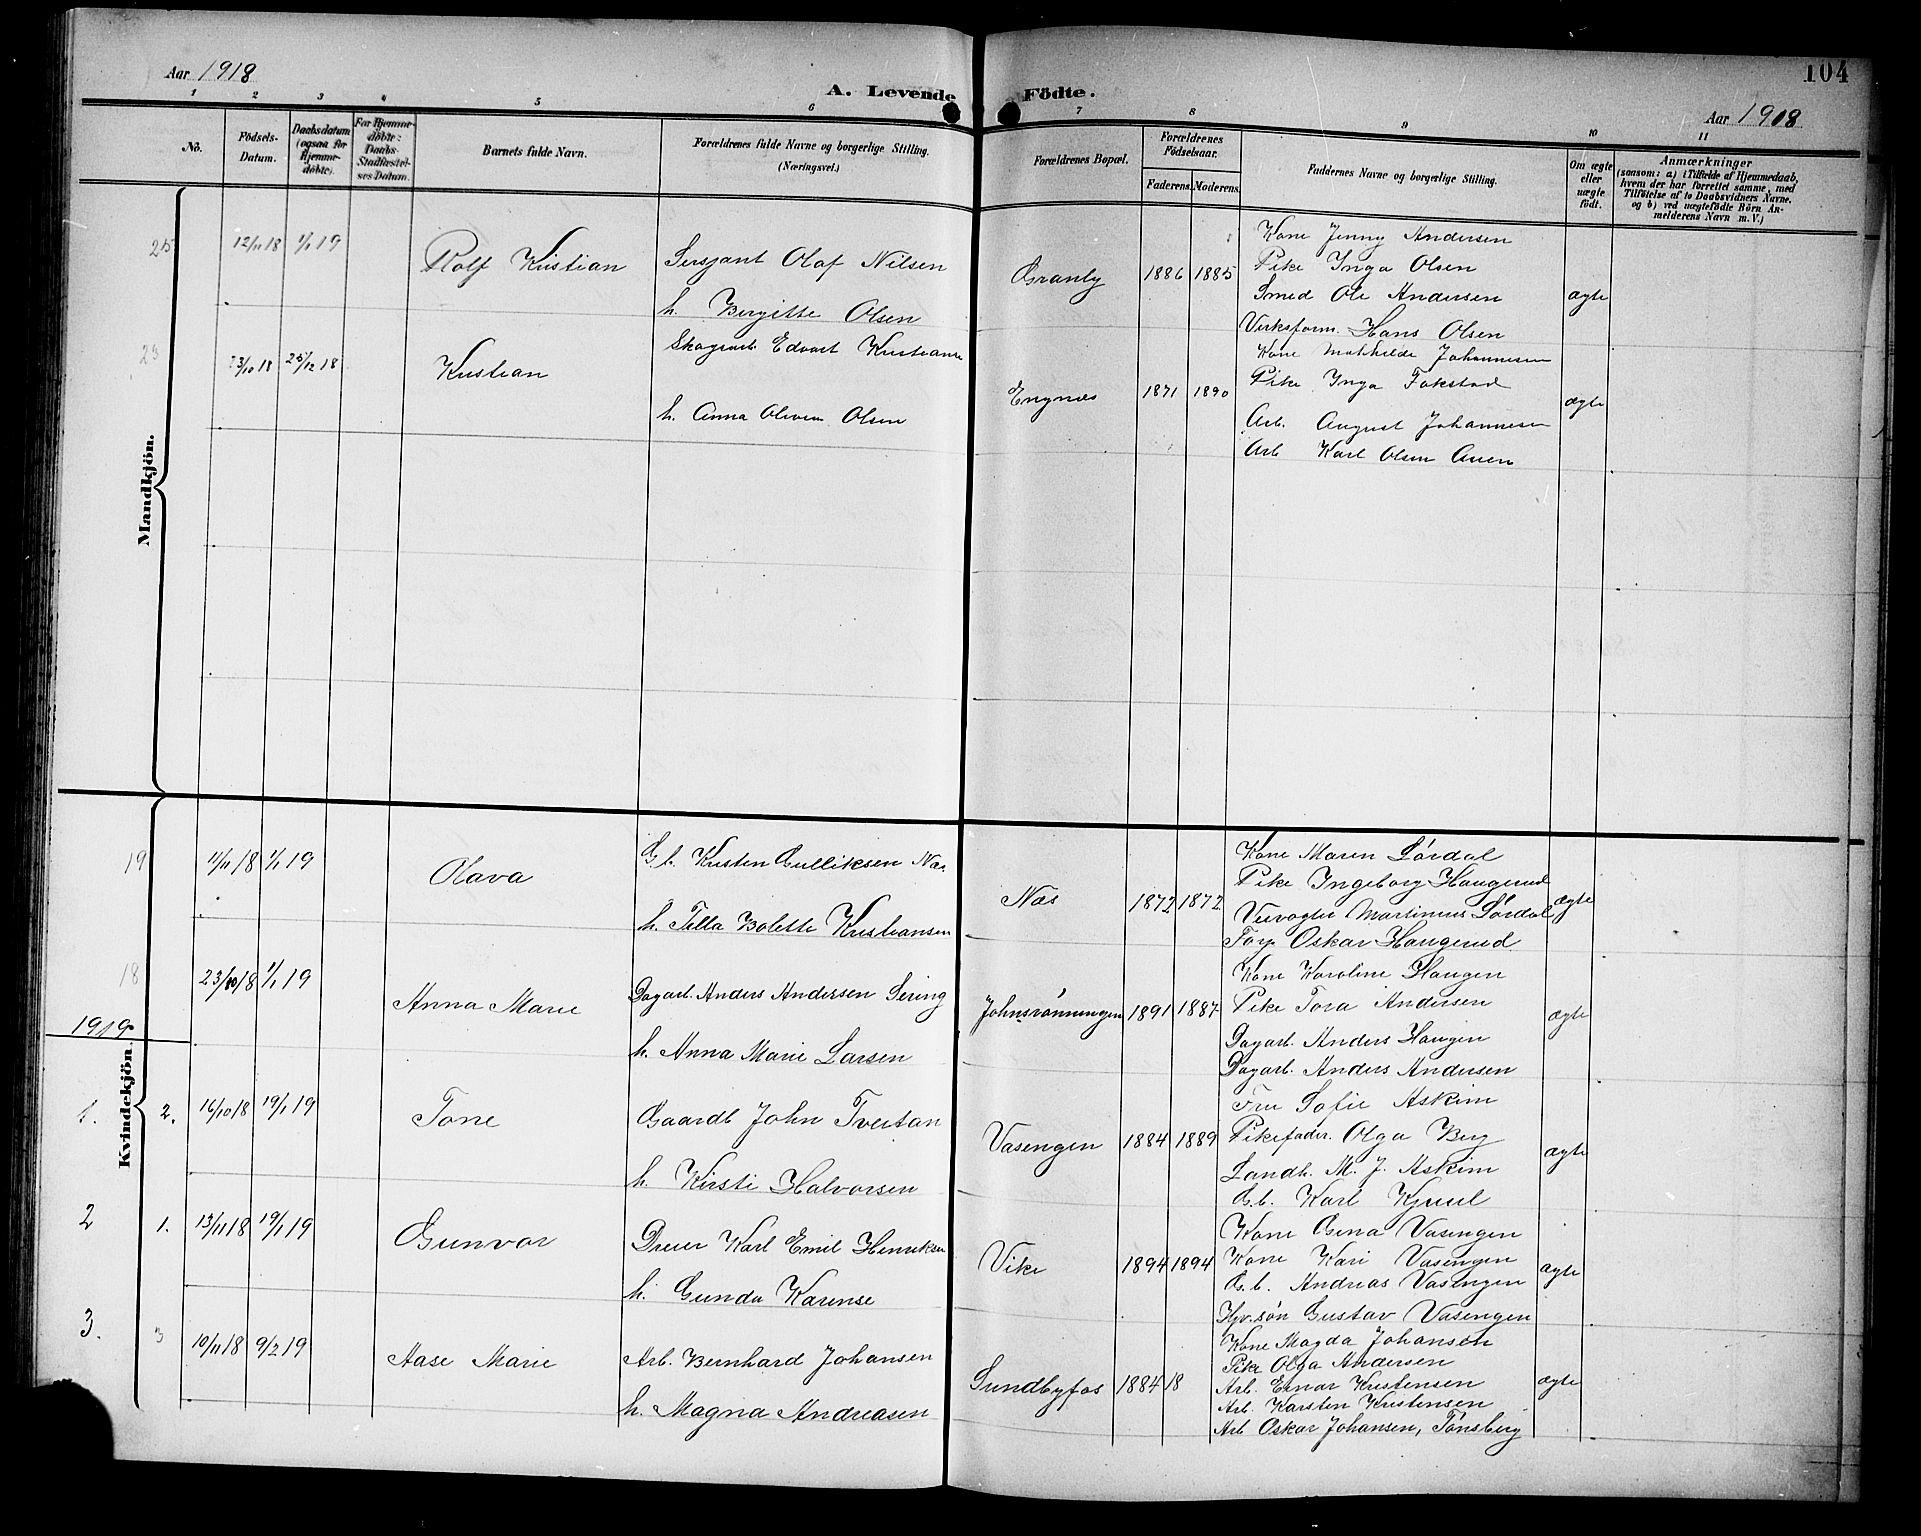 Aar 1918
A. Levende Födte.
104
Aar 1918
1 2 3 4 5 6 7 8 9 10 11
No.
Födsels-Datum.
Daabsdatum (ogsaa for Hjemmedöbte).
For Hjemmedöbte: Daabs-Stadfæstelses-Datum.
Barnets fulde Navn.
Forældrenes fulde Navne og borgerlige Stilling. (Næringsvei.)
Forældrenes Bopæl.
Forældrenes Födselsaar.
Faderens. Moderens.
Faddernes Navne og borgerlige Stilling.
Om ægte eller uægte födt.
Anmærkninger
(saasom: a) i Tilfælde af Hjemmedaab,
hvem der har forrettet samme, med
Tilföielse af to Daabsvidners Navne.
og b) ved uægtefödte Börn An-
melderens Navn m. V.)
Mandkjön.
25 12/11 18 1/1 19 Rolf Kristian
Sersjant Olaf Nilsen
h. Birgitte Olsen
Granly 1886 1885
Kone Jenny Andersen
Pike Inga Olsen
Smed Ole Andersen
Verksform. Hans Olsen
ægte
23 23/10 18 25/12 18 Kristian
Skogsarb. Edvart Kristiansen
h. Anna Oliven Olsen
Engnæs 1871 1890
Kone Mathilde Johannesen
Pike Inga Fokstad
Arb. August Johannesen
Arb Karl Olsen Auen
ægte
Kvindekjön.
19 11/11 18 1/1 19 Olava
G.b. Kristen Gulliksen Næs
h. Tilla Bolette Kristiansen
Næs 1872 1872
Kone Maren Lørdal
Pike Ingeborg Haugerud
Veivogter Martinius Lørdal
Forp Oskar Haugerud
ægte
18 23/10 18 1/1 19 Anna Marie
Dagarb. Anders Andersen Sering
h. Anna Marie Larsen
Johnsrønningen 1891 1887
Kone Karoline Haugen
Pike Tora Andersen
Dagarb. Anders Haugen
Dagarb. Anders Andersen
ægte
1919
1. 2. 16/10 18 19/1 19 Tone
Gaardb John Tveitan
h. Kirsti Halvorsen
Vasengen 1884 1889
Fru Sofie Askim
Pikefader. Olga Berg
Landh. M. J. Askim
G.b. Karl Kjuul
ægte
2 1. 13/11 18 19/1 19 Gunvor
Dreier Karl Emil Henriksen
h. Gunda Karense
Vike 1894 1894
Kone Gina Vasengen
Kone Kari Vasengen
G.b. Andreas Vasengen
Hjv.søn Gustav Vasengen
ægte
3. 3 10/11 18 9/2 19 Aase Marie
Arb. Bernhard Johansen
h. Magna Andreasen
Sundbyfos 1884 18
Kone Magda Johansen
Pike Olga Andersen
Arb. Einar Kristensen
Arb. Karsten Kristensen
Arb Oskar Johansen, Tønsberg
ægte